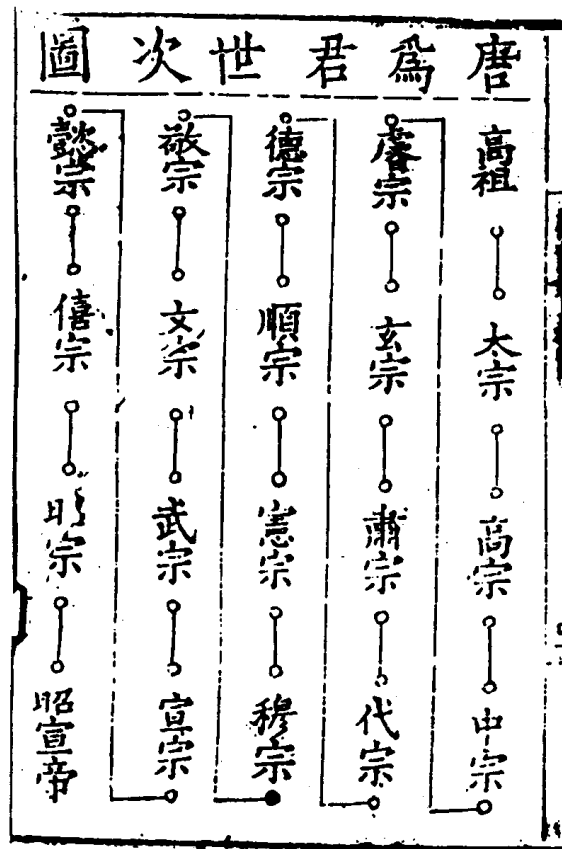 唐爲君世次圖
高祖 太宗 高宗 中宗
睿宗 玄宗 肅宗 代宗
德宗 順宗 憲宗 穆宗
敬宗 文宗 武宗 宣宗
懿宗 僖宗 昭宗 昭宣帝